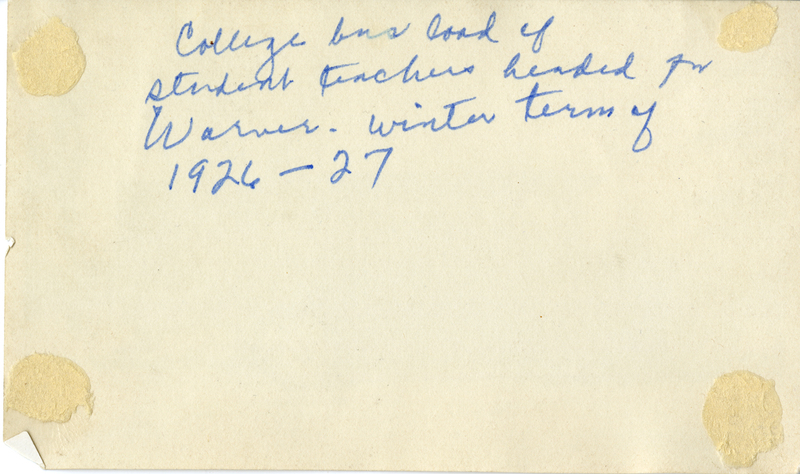 College bus load of
student teachers headed for
Warner - winter term of
1926 - 27